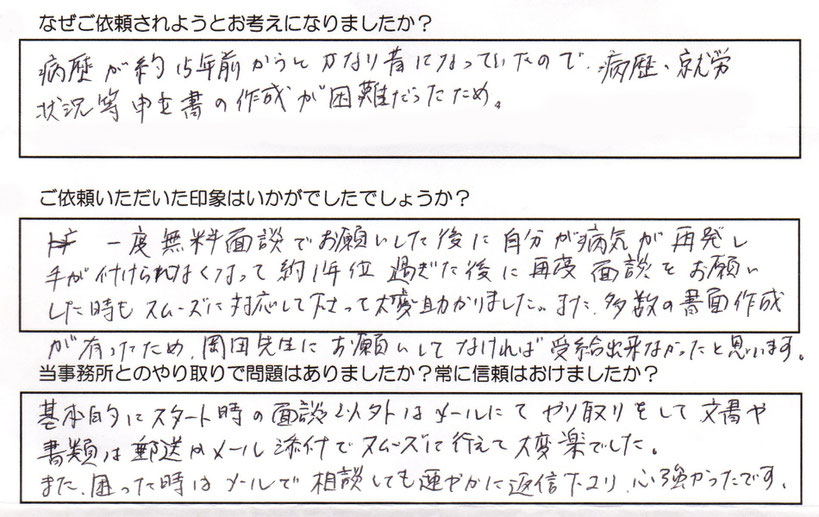 なぜご依頼されようとお考えになりましたか？
病歴が約15年前からとかなり昔になっていたので、病歴・就労
状況等申立書の作成が困難だったため。
ご依頼いただいた印象はいかがでしたでしょうか？
一度無料面談でお願いした後に自分が病気が再発し
手が付けられなくなって約1年位過ぎた後に再度面談をお願い
した時もスムーズに対応して下さって大変助かりました。また、多数の書面作成
が有ったため、岡田先生にお願いしてなければ受給出来なかったと思います。
当事務所とのやり取りで問題はありましたか？常に信頼はおけましたか？
基本的にスタート時の面談以外はメールにてやり取りをして文書や
書類は郵送かメール添付でスムーズに行えて大変楽でした。
また、困った時はメールで相談しても速やかに返信下さり、心強かったです。